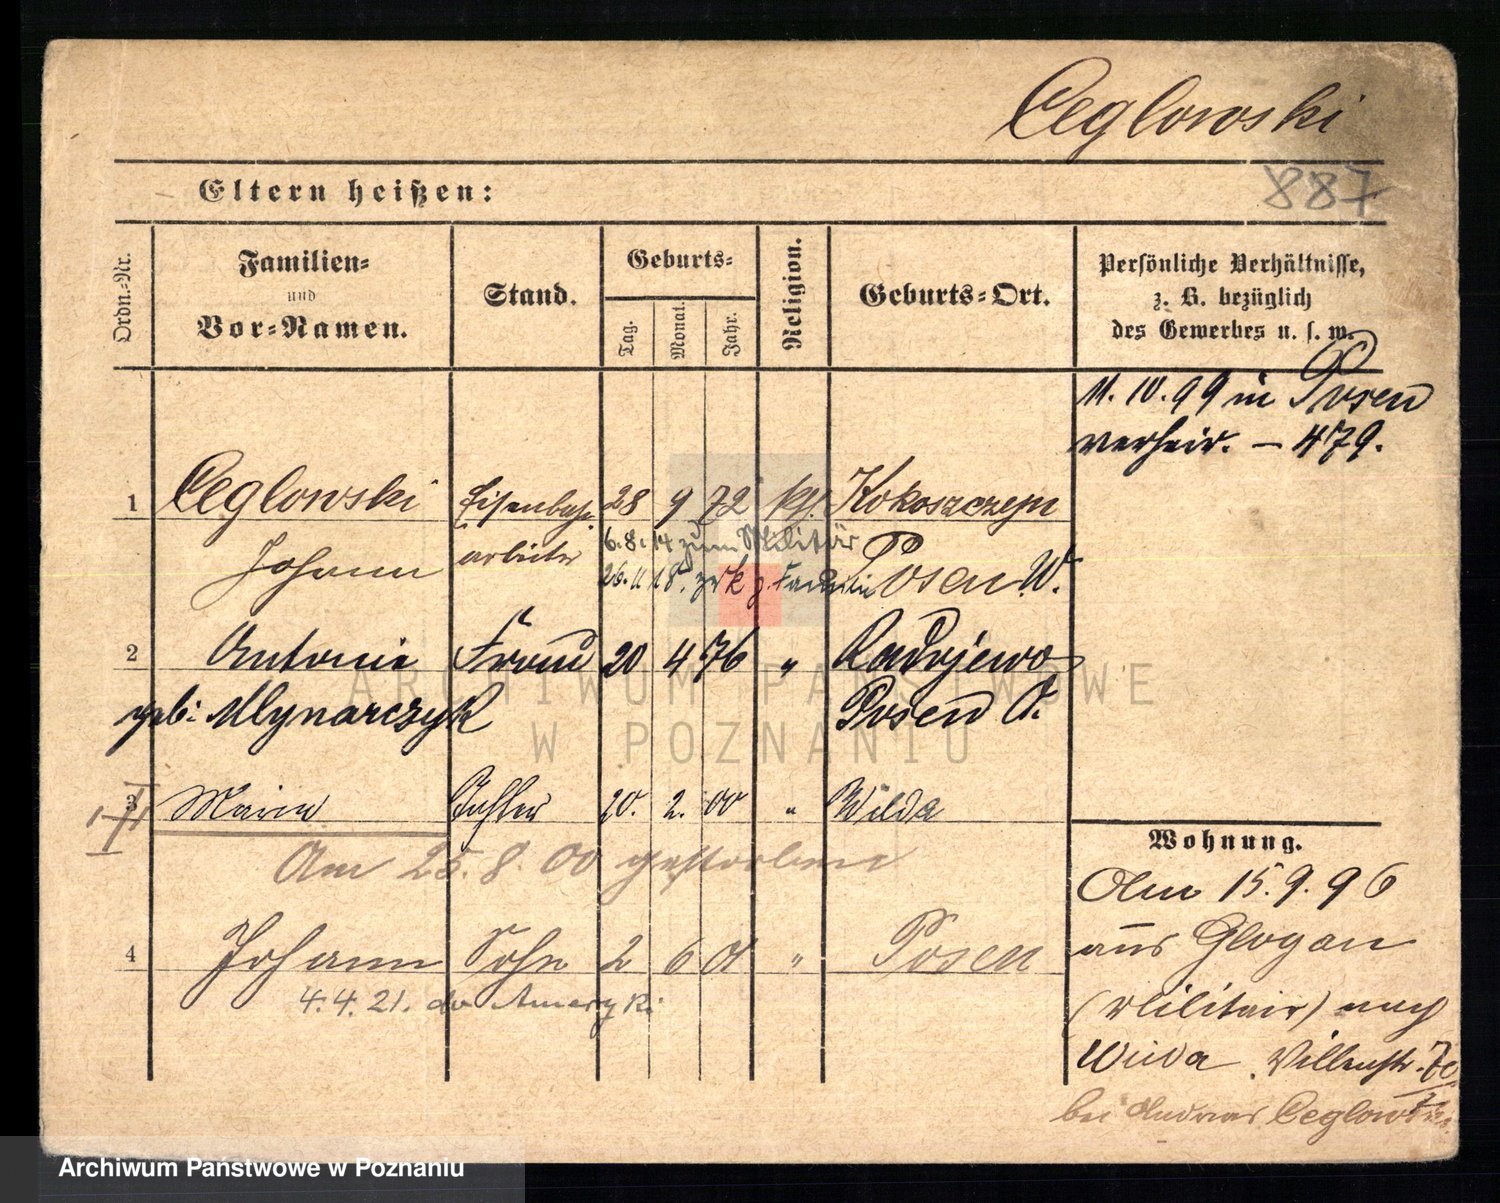 Ceglowski
887
Eltern heißen:
Ordn.-Nr.
Familien-
und
Vor-Namen.
Stand.
Geburts-
Tag.
Monat.
Jahr.
Religion.
Geburts-Ort.
Persönliche Verhältnisse,
z. B. bezüglich
des Gewerbes u. s. w.
11. 10. 99 in Posen
verheir. – 479.
1 Ceglowski Eisenbahn 28 9 72 kth. Kokoszczyn
Johann arbeiter 6.8.14 zum Militär Posen W.
26.11.18. zrk z. Familie
2 Antonie Frau 20 4 76 " Radojewo
geb: Mlynarczyk Posen O.
3 Maria Tochter 20. 2. 00 " Wilda
Am 25. 8. 00 gestorben
4 Johann Sohn 2 6 01 " Posen
4.4.21. do Ameryki
Wohnung.
Am 15. 9. 96
aus Glogau
(Militair) nach
Wilda Villenstr. 70
bei Andreas Ceglowski
ARCHIWUM PAŃSTWOWE
W POZNANIU
Archiwum Państwowe w Poznaniu